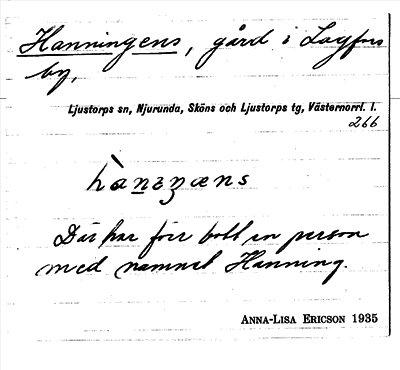 Hanningens, gård i Layfors
by,
Ljustorps sn, Njurunda, Sköns och Ljustorps tg, Västernorrl. l.
266
Där har förr bott en person
med namnet Hanning.
ANNA-LISA ERICSON 1935